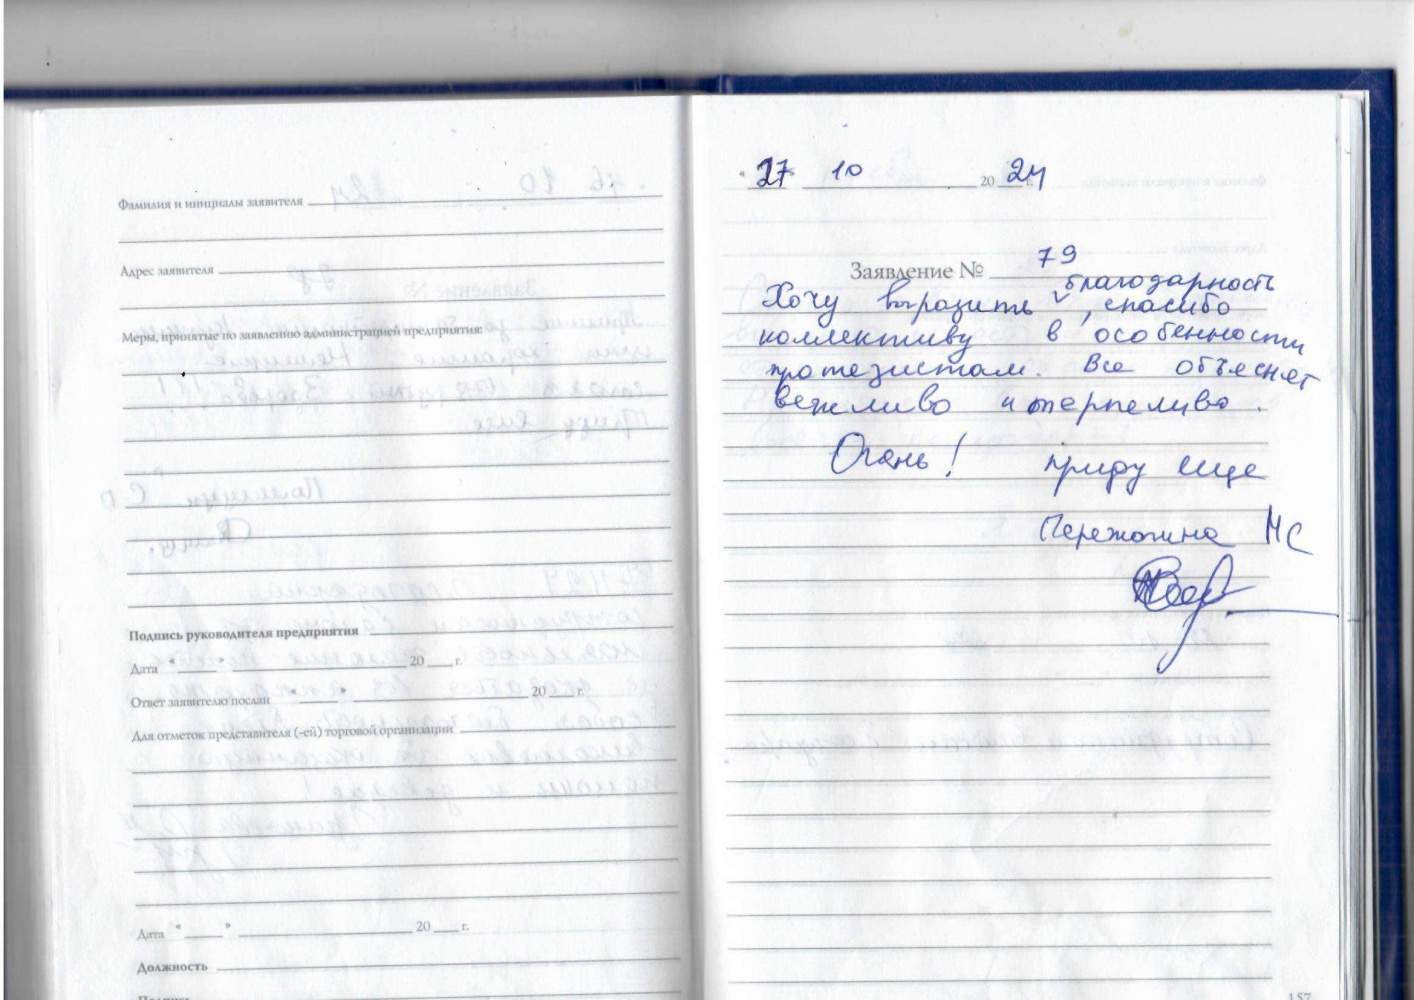 Фамилия и инициалы заявителя
Адрес заявителя
Меры, принятые по заявлению администрацией предприятия:
Подпись руководителя предприятия
Дата "___" ___ 20 ___ г.
Ответ заявителю послан "___" ___ 20 ___ г.
Для отметок представителя (-ей) торговой организации
Дата "___" ___ 20 ___ г.
Должность
Подпись
"27" 10 20 24 г.
Заявление № 79
Хочу выразить благодарность, спасибо
коллективу в особенности
протезистам. Все объяснят
вежливо и терпеливо.
Очень! приду еще
МС
157